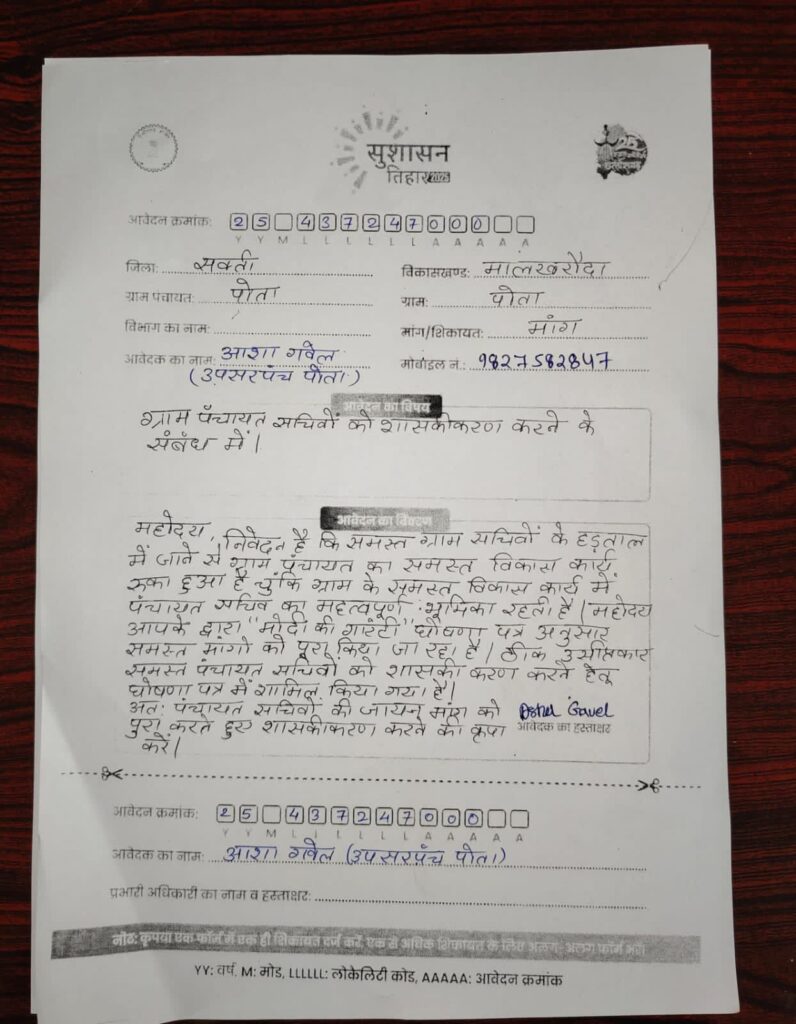 सुशासन
तिहार 2025
आवेदन क्रमांक: 25 437247000
Y Y M L L L L L L A A A A A
जिला: सक्ती
विकासखण्ड: मालखरौदा
ग्राम पंचायत: पोता
ग्राम: पोता
विभाग का नाम:
मांग/शिकायत: मांग
आवेदक का नाम: आशा गवेल
(उपसरपंच पोता)
मोबाईल नं.: 9827582847
आवेदन का विषय
ग्राम पंचायत सचिवों को शासकीकरण करने के
संबंध में।
आवेदन का विवरण
महोदय,
निवेदन है कि समस्त ग्राम सचिवों के हड़ताल
में जाने से ग्राम पंचायत का समस्त विकास कार्य
रुका हुआ है चुंकि ग्राम के समस्त विकास कार्य में
पंचायत सचिव का महत्वपूर्ण भूमिका रहती है। महोदय
आपके द्वारा "मोदी की गारंटी" घोषणा पत्र अनुसार
समस्त मांगो को पूरा किया जा रहा है। ठीक उसीप्रकार
समस्त पंचायत सचिवों को शासकी करण करने हेतू
घोषणा पत्र में शामिल किया गया है।
अतः पंचायत सचिवों की जायज मांग को
पुरा करते हुए शासकीकरण करने की कृपा
करें।
Asha Gavel
आवेदक का हस्ताक्षर
आवेदन क्रमांक: 25 437247000
Y Y M L L L L L L A A A A A
आवेदक का नाम: आशा गवेल (उपसरपंच पोता)
प्रभारी अधिकारी का नाम व हस्ताक्षर:
नोट: कृपया एक फॉर्म में एक ही शिकायत दर्ज करें, एक से अधिक शिकायत के लिए अलग-अलग फॉर्म भरें
YY: वर्ष, M: मोड, LLLLLL: लोकेलिटी कोड, AAAAA: आवेदन क्रमांक